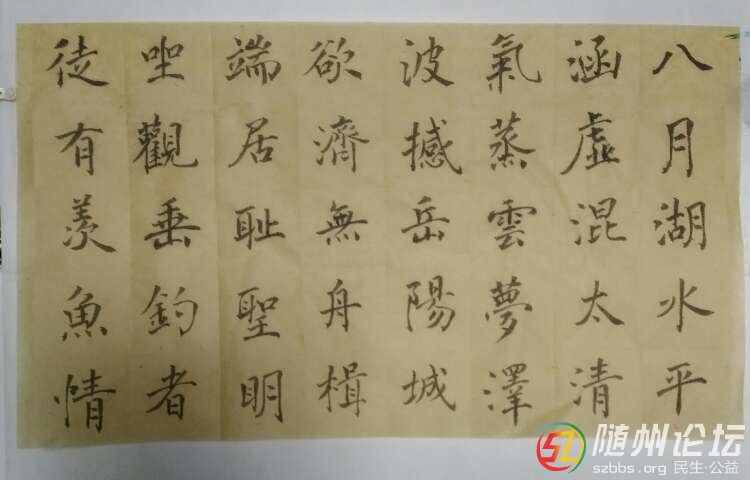 八月湖水平
涵虛混太清
氣蒸雲夢澤
波撼岳陽城
欲濟無舟楫
端居耻聖明
坐觀垂釣者
徒有羨魚情
随州论坛
szbbs.org 民生·公益